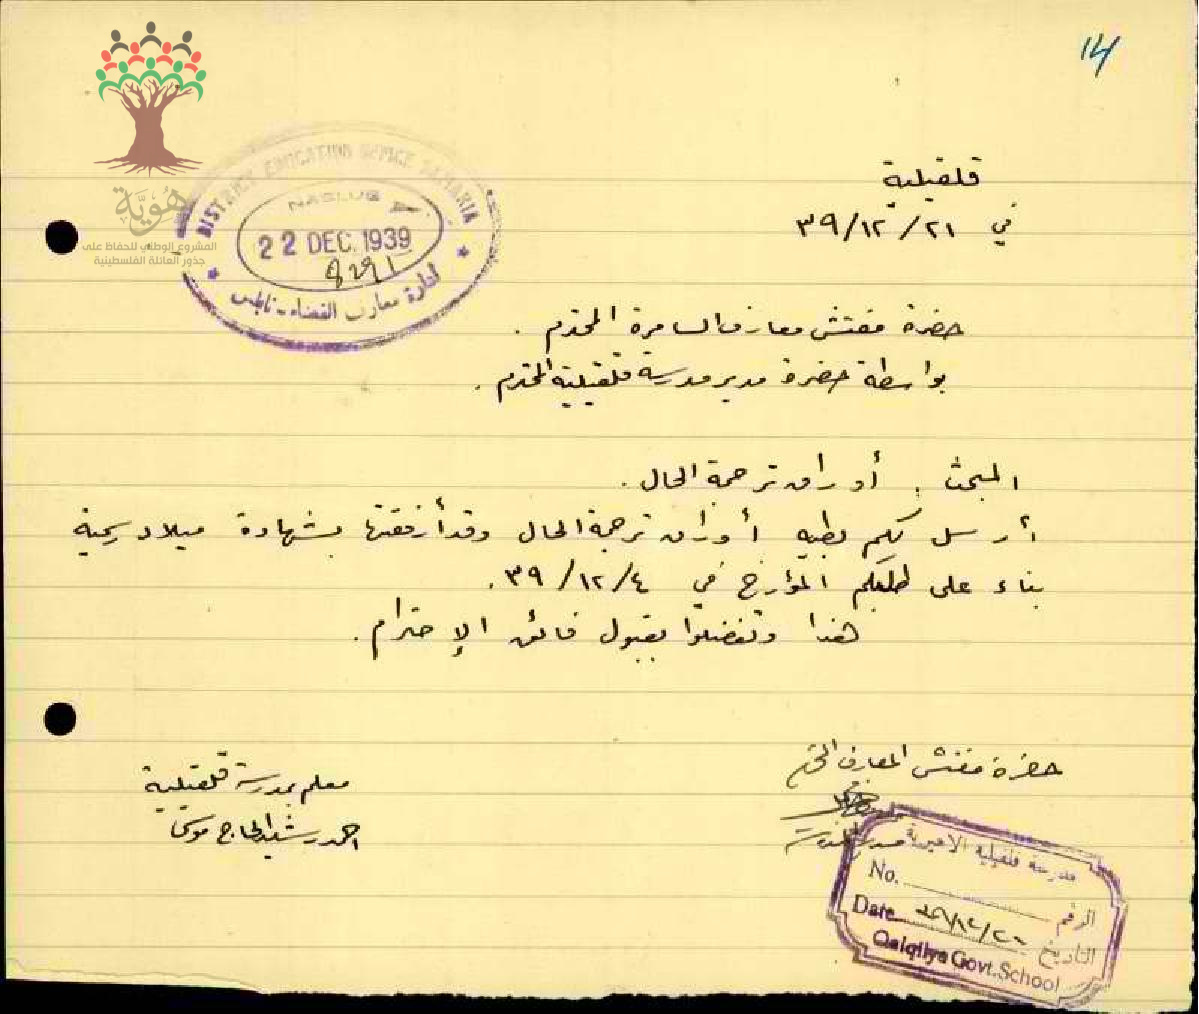 14
قلقيلية
في ٢١/١٢/٣٩
هُوِيَّة
المشروع الوطني للحفاظ على
جذور العائلة الفلسطينية
DISTRICT EDUCATION OFFICE SAMARIA
NABLUS
22 DEC. 1939
8291
ادارة معارف القضاء - نابلس
حضرة مفتش معارف السامرة المحترم .
بواسطة حضرة مدير مدرسة قلقيلية المحترم .
المبحث : أوراق ترجمة الحال .
أرسل لكم بطيه أوراق ترجمة الحال وقد أرفقتها بشهادة ميلاد رسمية
بناء على طلبكم المؤرخ في ٤/١٢/٣٩ .
هذا وتفضلوا بقبول فائق الإحترام .
حضرة مفتش المعارف المحترم
معلم بمدرسة قلقيلية
احمد رشيد الحاج موسى
مدرسة قلقيلية الاميرية
No. الرقم
Date التاريخ
Qalqilya Govt. School